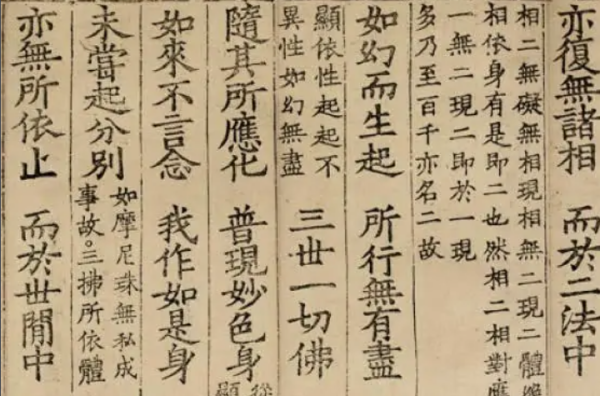 亦復無諸相　而於二法中
相二無礙無相現相無二現二體
相依身有是即二也然相二相對
一無二現二即於一現
多乃至百千亦名二故
如幻而生起　所行無有盡
顯依性起起不
異性如幻無盡
三世一切佛
隨其所應化　普現妙色身
如來不言念　我作如是身
未嘗起分別
如摩尼珠無私成
事故。三拂所依體
亦無所依止　而於世閒中